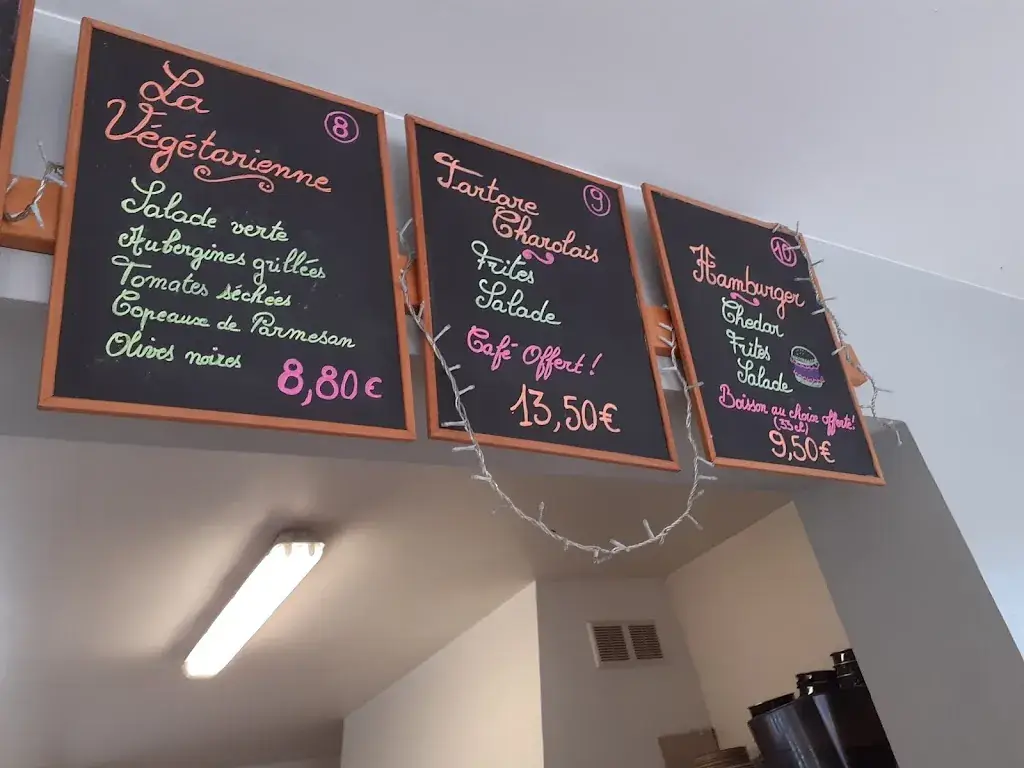 La
Végétarienne
8
Salade verte
Aubergines grillées
Tomates séchées
Copeaux de Parmesan
Olives noires
8,80€
Tartare
Charolais
9
Frites
Salade
Café Offert!
13,50€
Hamburger
10
Chedar
Frites
Salade
Boisson au choix offerte!
(33cl)
9,50€